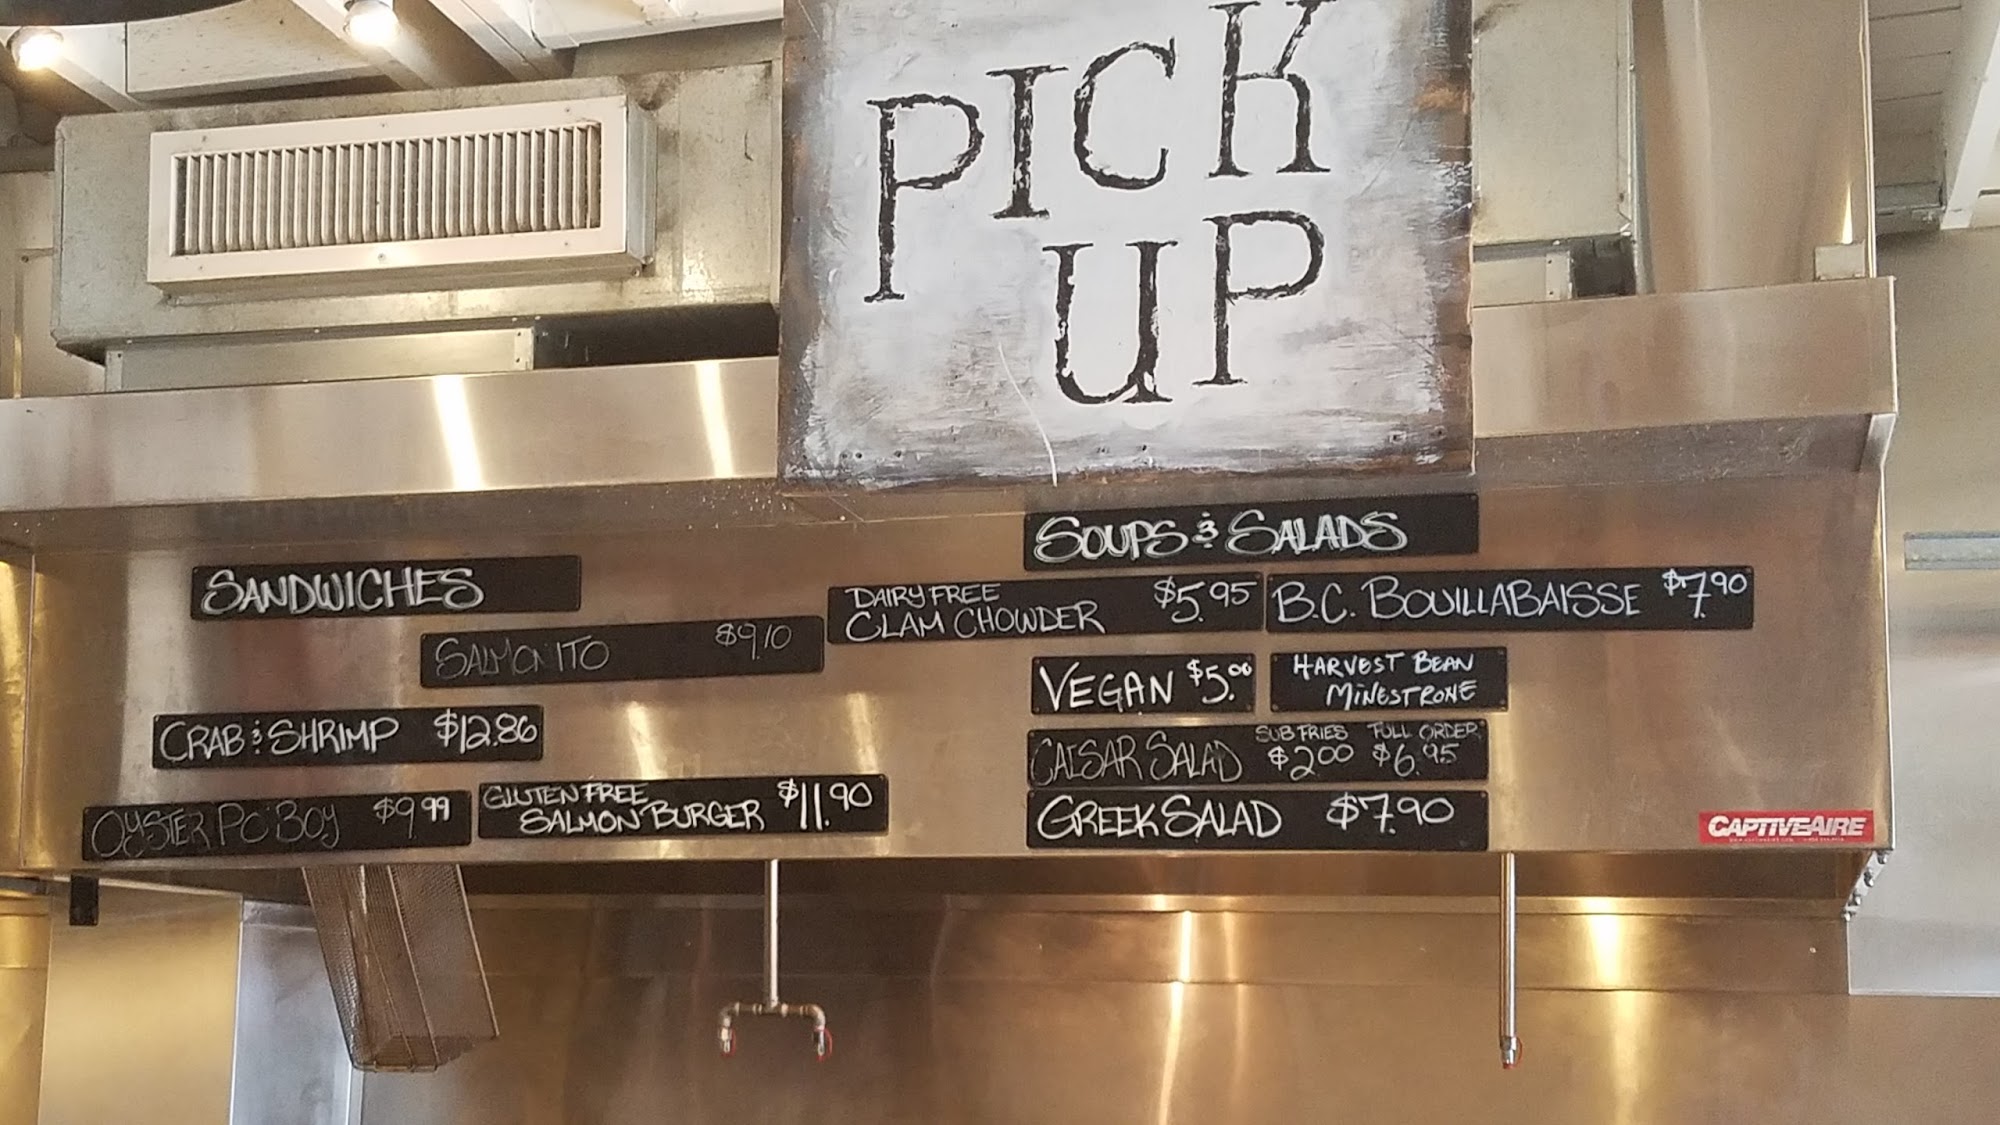 PICK
UP
SOUPS & SALADS
SANDWICHES
DAIRY FREE
CLAM CHOWDER $5.95
B.C. BOUILLABAISSE $7.90
SALMONITO $9.10
VEGAN $5.00
HARVEST BEAN
MINESTRONE
CRAB & SHRIMP $12.86
CAESAR SALAD
SUB FRIES FULL ORDER
$2.00 $6.95
OYSTER PO' BOY $9.99
GLUTEN FREE
SALMON BURGER $11.90
GREEK SALAD $7.90
CAPTIVEAIRE